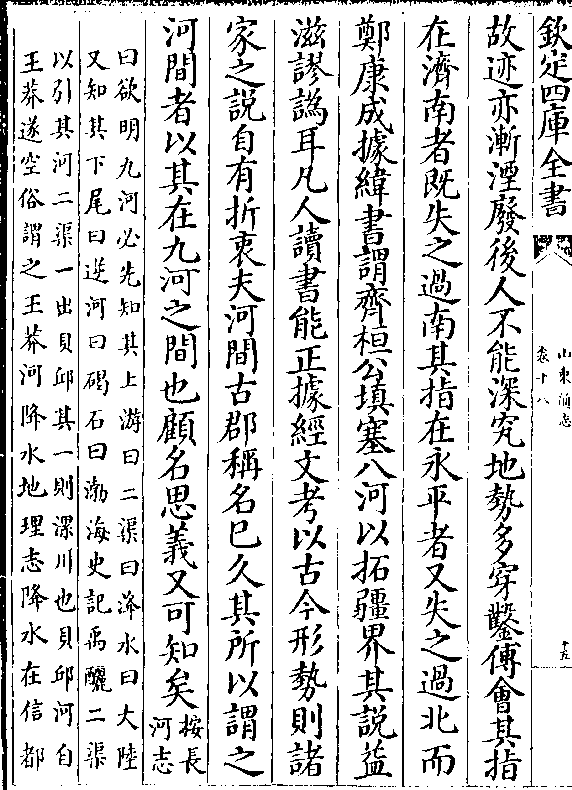 欽定四庫全書
山東通志
卷十八
十五
故迹亦漸湮廢後人不能深究地勢多穿鑿傅會其指
在濟南者既失之過南其指在永平者又失之過北而
鄭康成據緯書謂齊桓公填塞八河以拓疆界其說益
滋謬譌耳凡人讀書能正據經文考以古今形勢則諸
家之說自有折衷夫河間古郡稱名已久其所以謂之
河間者以其在九河之間也顧名思義又可知矣
按長
河志
曰欲明九河必先知其上游曰二渠曰洚水曰大陸
又知其下尾曰逆河曰碣石曰渤海史記禹釃二渠
以引其河二渠一出貝邱其一則漯川也貝邱河自
王莽遂空俗謂之王莽河降水地理志降水在信都